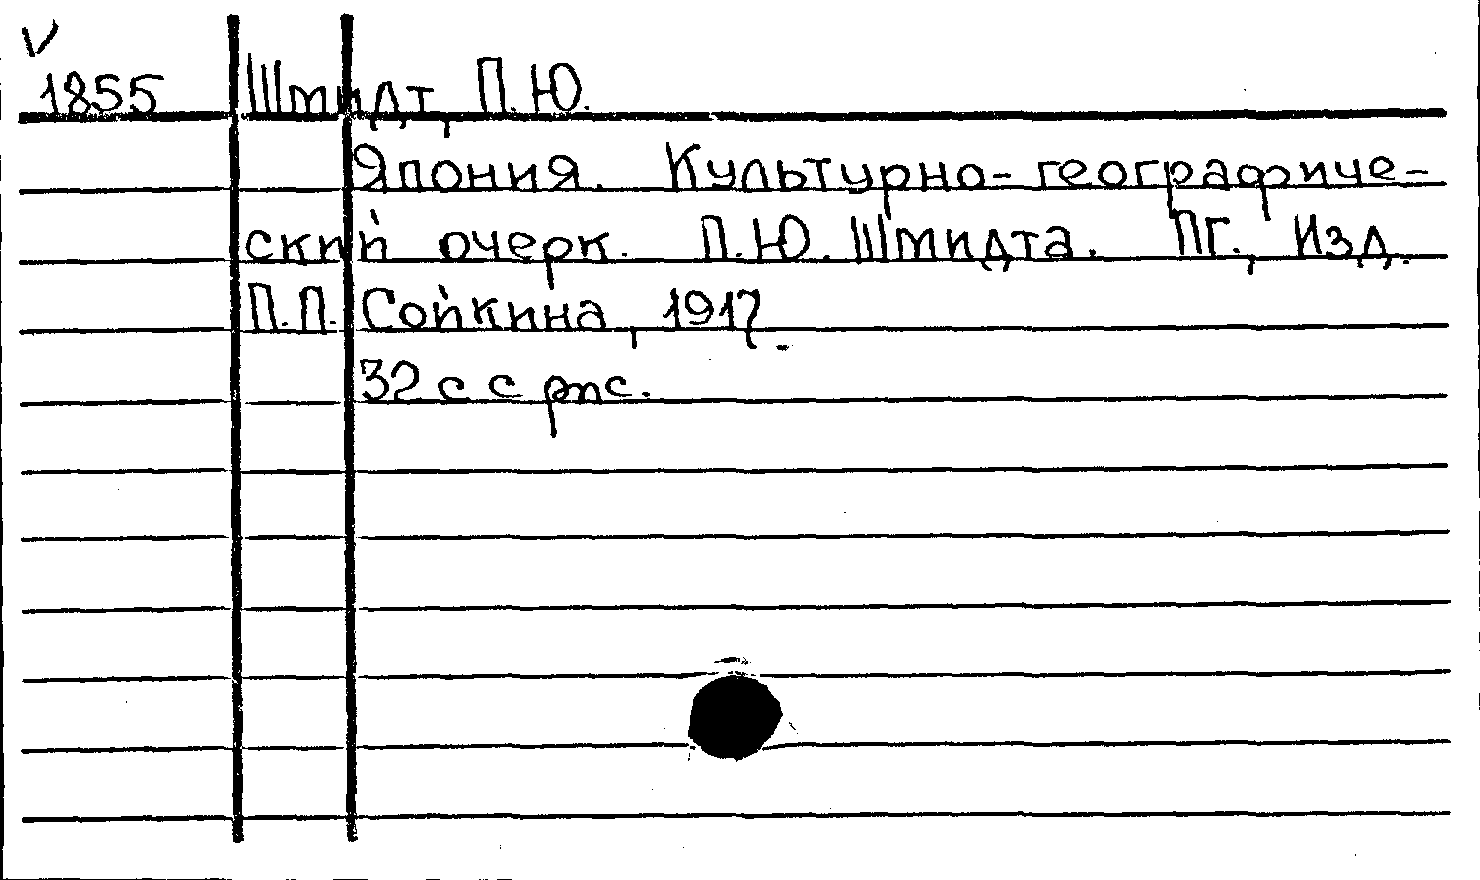 V
1855 Шмидт, П.Ю.
Япония. Культурно-географиче-
ский очерк. П.Ю. Шмидта. Пг., Изд.
П.П. Сойкина, 1917.
32 с с рис.